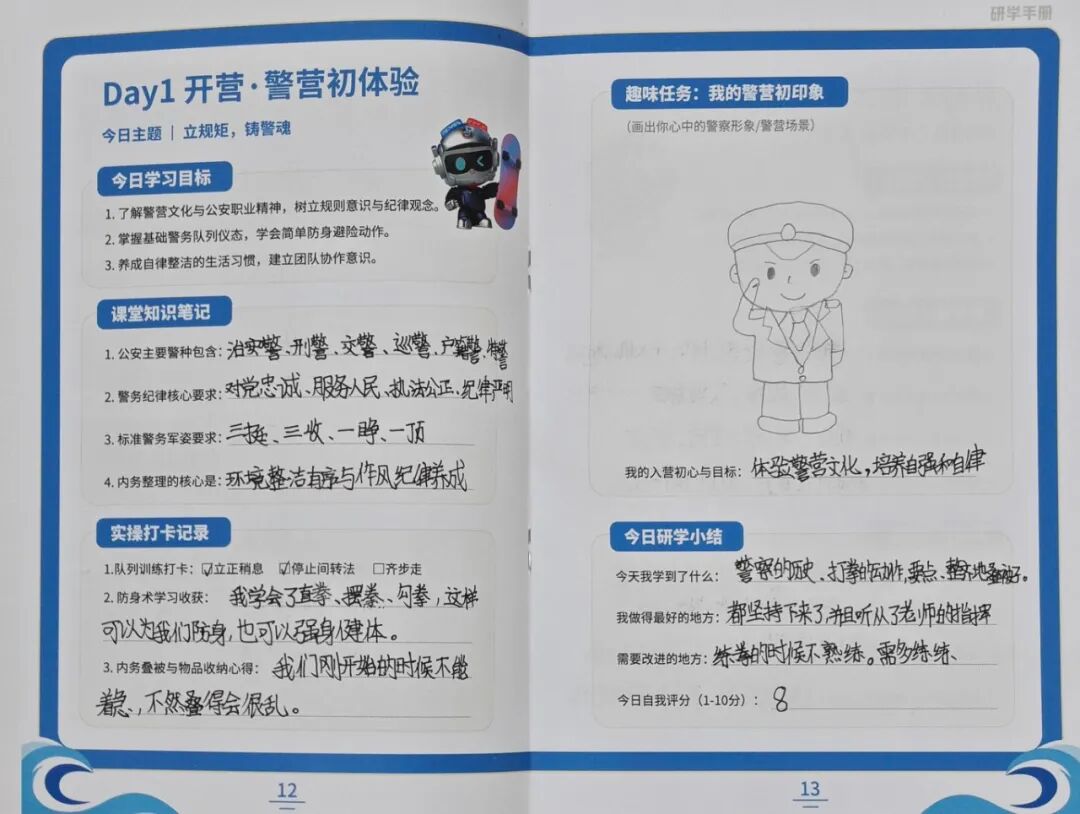 研学手册
Day1 开营·警营初体验
今日主题 | 立规矩，铸警魂
今日学习目标
1. 了解警营文化与公安职业精神，树立规则意识与纪律观念。
2. 掌握基础警务队列仪态，学会简单防身避险动作。
3. 养成自律整洁的生活习惯，建立团队协作意识。
课堂知识笔记
1. 公安主要警种包含：治安警、刑警、交警、巡警、户籍警、特警
2. 警务纪律核心要求：对党忠诚、服务人民、执法公正、纪律严明
3. 标准警务军姿要求：三挺、三收、一睁、一顶
4. 内务整理的核心是：环境整洁有序与作风纪律养成
实操打卡记录
1.队列训练打卡：☑立正稍息 ☑停止间转法 □齐步走
2. 防身术学习收获：我学会了直拳、摆拳、勾拳，这样
可以为我们防身，也可以强身健体。
3. 内务叠被与物品收纳心得：我们刚开始的时候不能
着急，不然叠得会很乱。
12
趣味任务：我的警营初印象
（画出你心中的警察形象/警营场景）
我的入营初心与目标：体验警营文化，培养自强和自律
今日研学小结
今天我学到了什么：警察的历史、打拳的动作，要点、整齐地叠被子。
我做得最好的地方：都坚持下来了，并且听从了老师的指挥
需要改进的地方：练拳的时候不熟练。需多练练、
今日自我评分（1-10分）：8
13